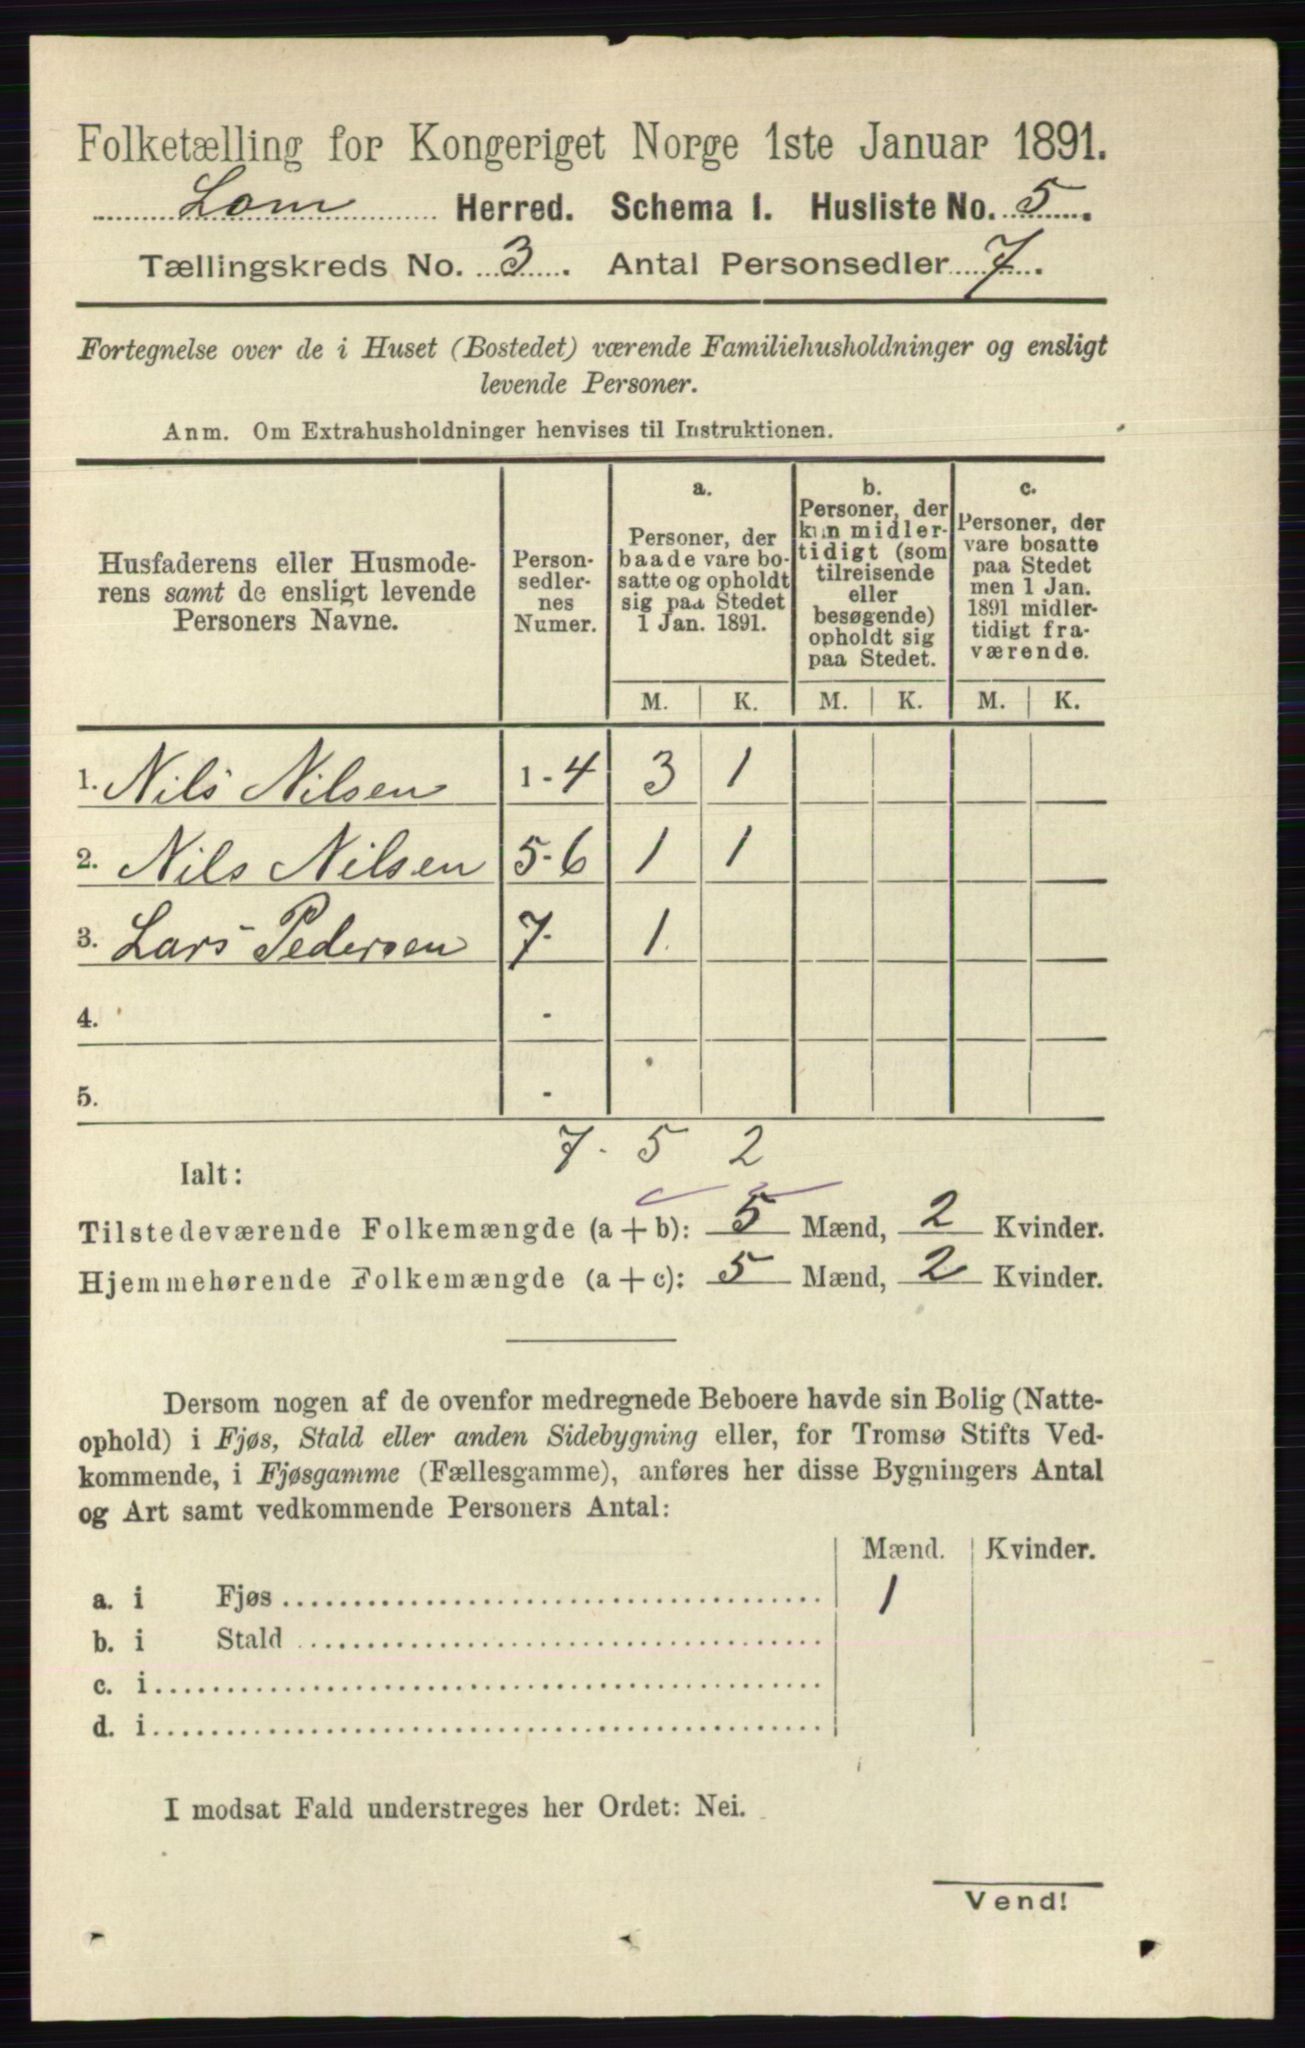 Folketælling for Kongeriget Norge 1ste Januar 1891.
Lom Herred. Schema I. Husliste No. 5.
Tællingskreds No. 3. Antal Personsedler 7.
Fortegnelse over de i Huset (Bostedet) værende Familiehusholdninger og ensligt
levende Personer.
Anm. Om Extrahusholdninger henvises til Instruktionen.
Husfaderens eller Husmode-
rens samt de ensligt levende
Personers Navne.
Person-
sedler-
nes
Numer.
a.
Personer, der
baade vare bo-
satte og opholdt
sig paa Stedet
1 Jan. 1891.
b.
Personer, der
kun midler-
tidigt (som
tilreisende
eller
besøgende)
opholdt sig
paa Stedet.
c.
Personer, der
vare bosatte
paa Stedet
men 1 Jan.
1891 midler-
tidigt fra-
værende.
M. K. M. K. M. K.
1. Nils Nilsen 1-4 3 1
2. Nils Nilsen 5-6 1 1
3. Lars Pedersen 7- 1
4. -
5. -
7. 5 2
Ialt:
Tilstedeværende Folkemængde (a + b): 5 Mænd, 2 Kvinder.
Hjemmehørende Folkemængde (a + c): 5 Mænd, 2 Kvinder.
Dersom nogen af de ovenfor medregnede Beboere havde sin Bolig (Natte-
ophold) i Fjøs, Stald eller anden Sidebygning eller, for Tromsø Stifts Ved-
kommende, i Fjøsgamme (Fællesgamme), anføres her disse Bygningers Antal
og Art samt vedkommende Personers Antal:
Mænd. Kvinder.
a. i Fjøs 1
b. i Stald
c. i
d. i
I modsat Fald understreges her Ordet: Nei.
Vend!